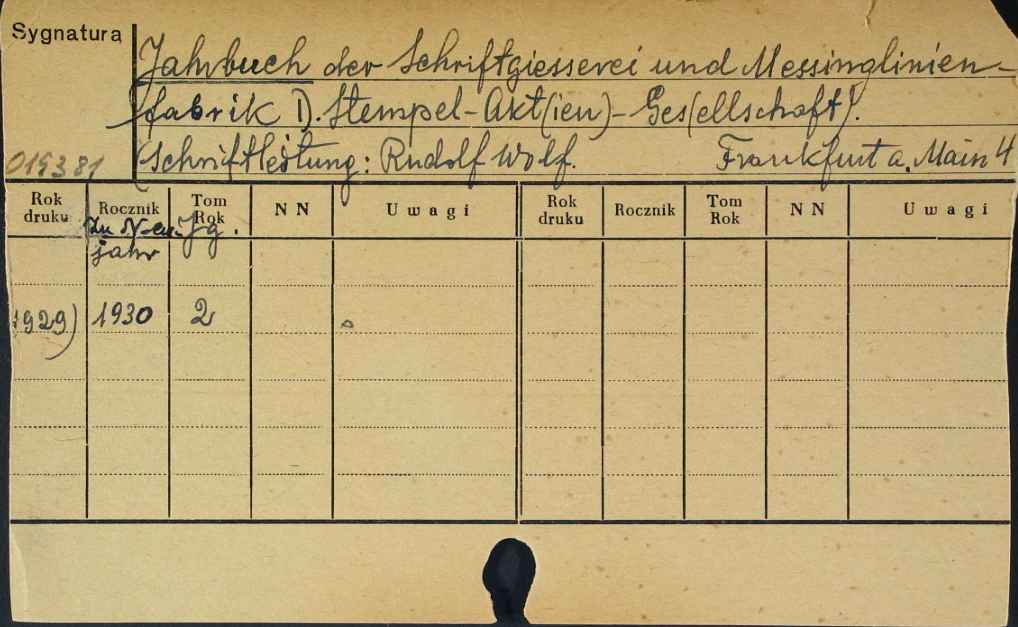 Sygnatura
Jahrbuch der Schriftgiesserei und Messinglinien-
fabrik D. Stempel-Akt(ien)-Ges(ellschaft).
019381 (Schriftleitung: Rudolf Wolf. Frankfurt a. Main 4
Rok druku Rocznik Tom Rok N N Uwagi Rok druku Rocznik Tom Rok N N Uwagi
Zu Neu- Jg.
jahr
1929) 1930 2